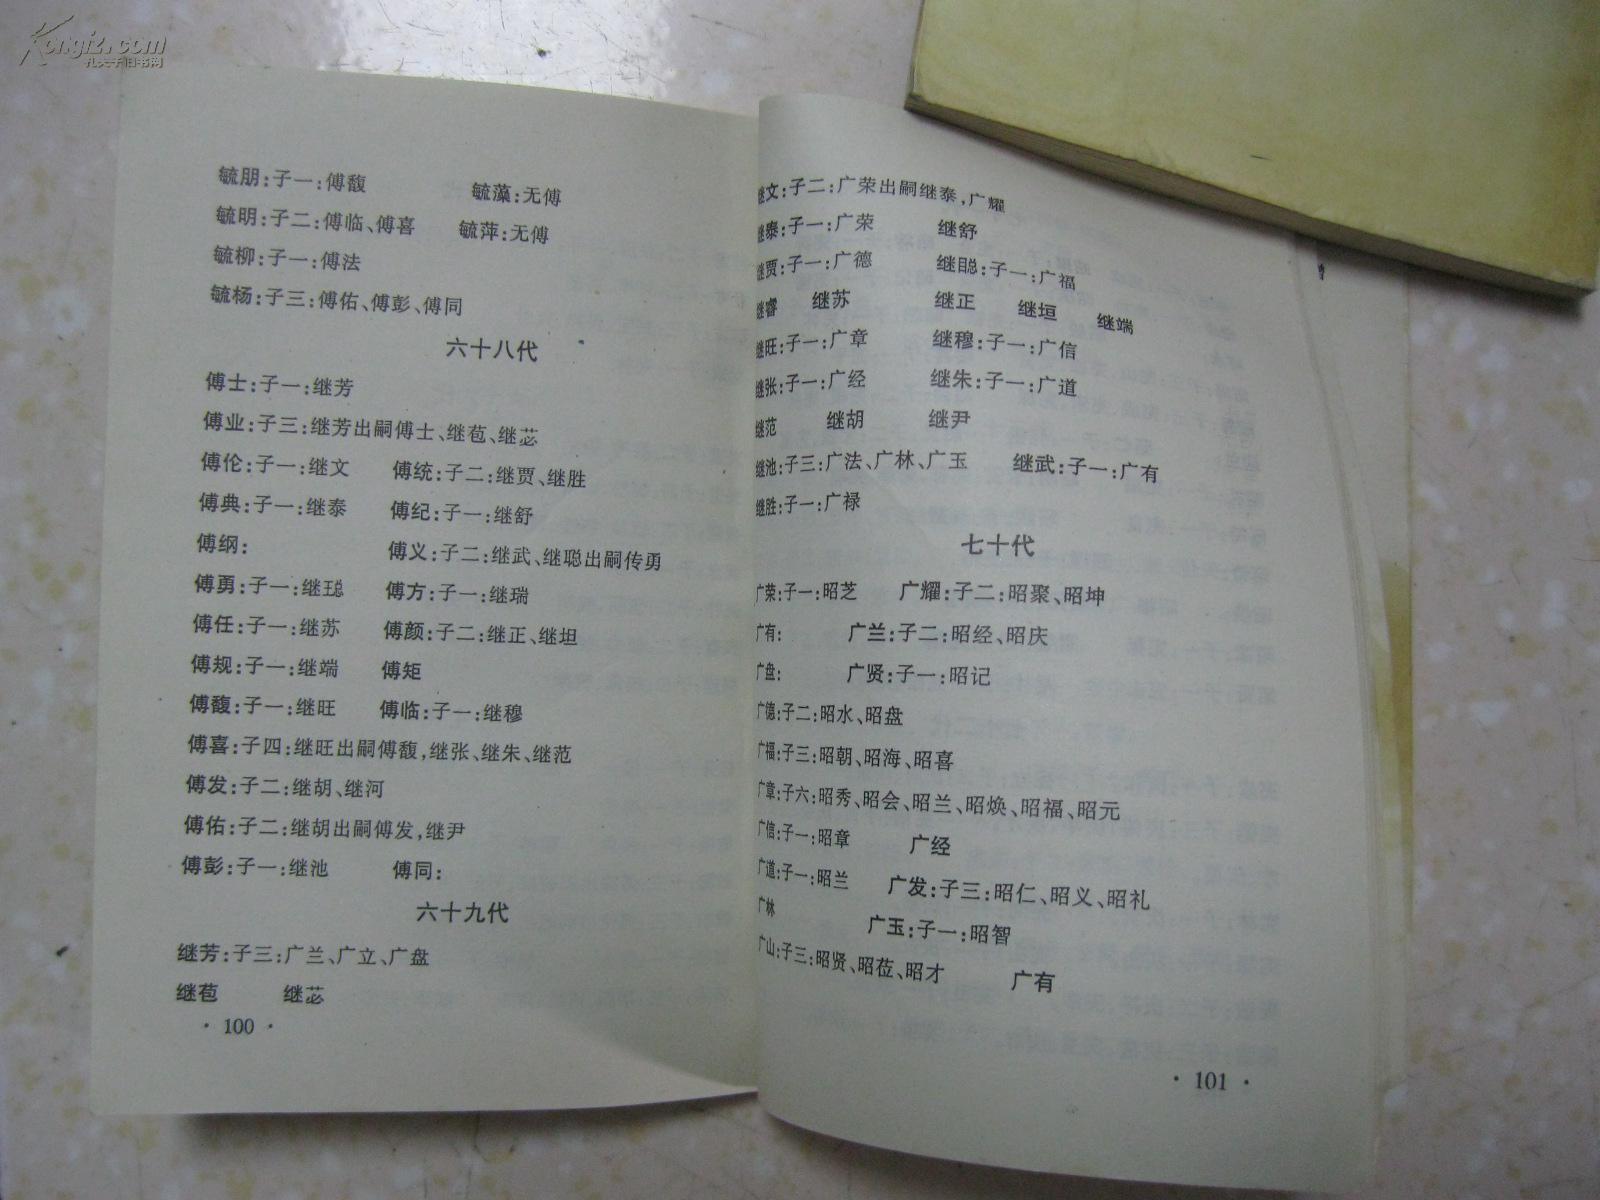 Kongfz.com
孔夫子旧书网
毓朋:子一:傅馥 毓藻:无傅
毓明:子二:傅临、傅喜 毓萍:无傅
毓柳:子一:傅法
毓杨:子三:傅佑、傅彭、傅同
六十八代
傅士:子一:继芳
傅业:子三:继芳出嗣傅士、继苞、继苾
傅伦:子一:继文 傅统:子二:继贾、继胜
傅典:子一:继泰 傅纪:子一:继舒
傅纲: 傅义:子二:继武、继聪出嗣传勇
傅勇:子一:继聪 傅方:子一:继瑞
傅任:子一:继苏 傅颜:子二:继正、继坦
傅规:子一:继端 傅矩
傅馥:子一:继旺 傅临:子一:继穆
傅喜:子四:继旺出嗣傅馥,继张、继朱、继范
傅发:子二:继胡、继河
傅佑:子二:继胡出嗣傅发,继尹
傅彭:子一:继池 傅同:
六十九代
继芳:子三:广兰、广立、广盘
继苞 继苾
· 100 ·
继文:子二:广荣出嗣继泰,广耀
继泰:子一:广荣 继舒
继贾:子一:广德 继聪:子一:广福
继睿 继苏 继正 继垣 继端
继旺:子一:广章 继穆:子一:广信
继张:子一:广经 继朱:子一:广道
继范 继胡 继尹
继池:子三:广法、广林、广玉 继武:子一:广有
继胜:子一:广禄
七十代
广荣:子一:昭芝 广耀:子二:昭聚、昭坤
广有: 广兰:子二:昭经、昭庆
广盘: 广贤:子一:昭记
广德:子二:昭水、昭盘
广福:子三:昭朝、昭海、昭喜
广章:子六:昭秀、昭会、昭兰、昭焕、昭福、昭元
广信:子一:昭章 广经
广道:子一:昭兰 广发:子三:昭仁、昭义、昭礼
广林 广玉:子一:昭智
广山:子三:昭贤、昭莅、昭才 广有
· 101 ·